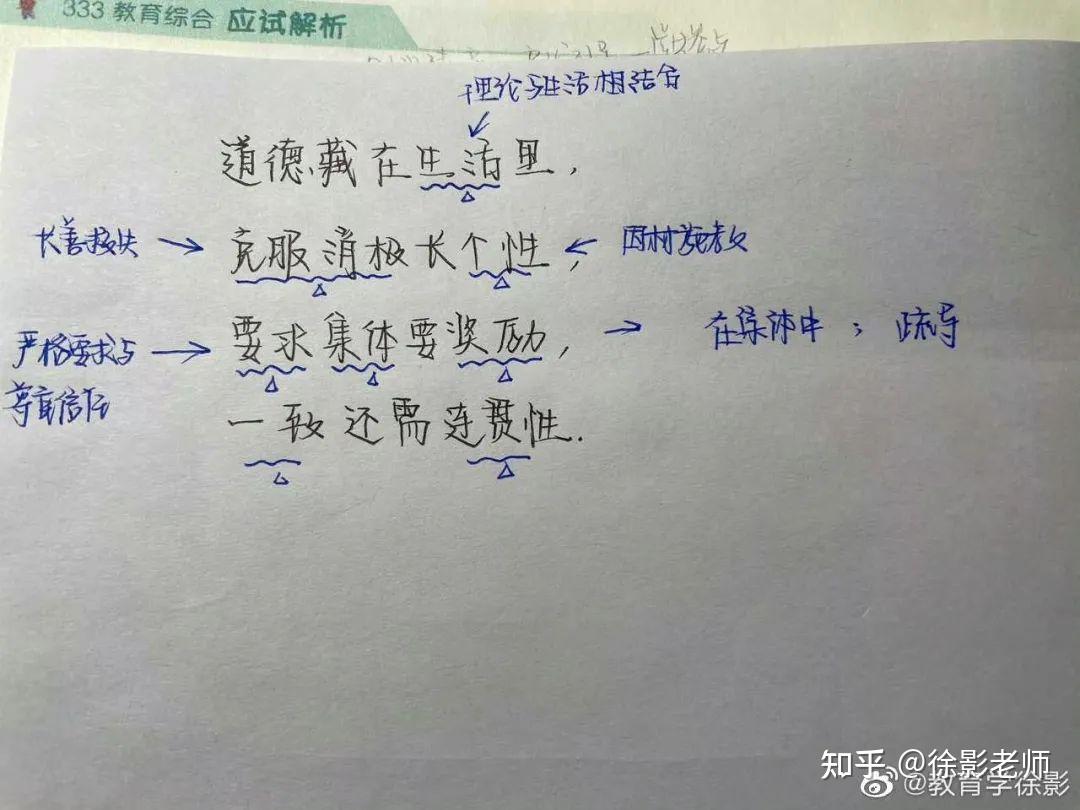 333 教育综合 应试解析
理论与生活相结合
道德藏在生活里，
长善救失
克服消极长个性，
因材施教
严格要求与
尊重信任
要求集体要奖励，
在集体中；疏导
一致还需连贯性.
知乎 @徐影老师
@教育学徐影